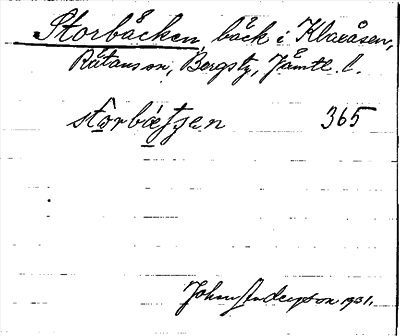 Storbäcken, bäck i Klaxåsen,
Rätansn, Bergs tg, Jämtl. l.
stòrbæʃʃen 365
Johan Anderson 1931.